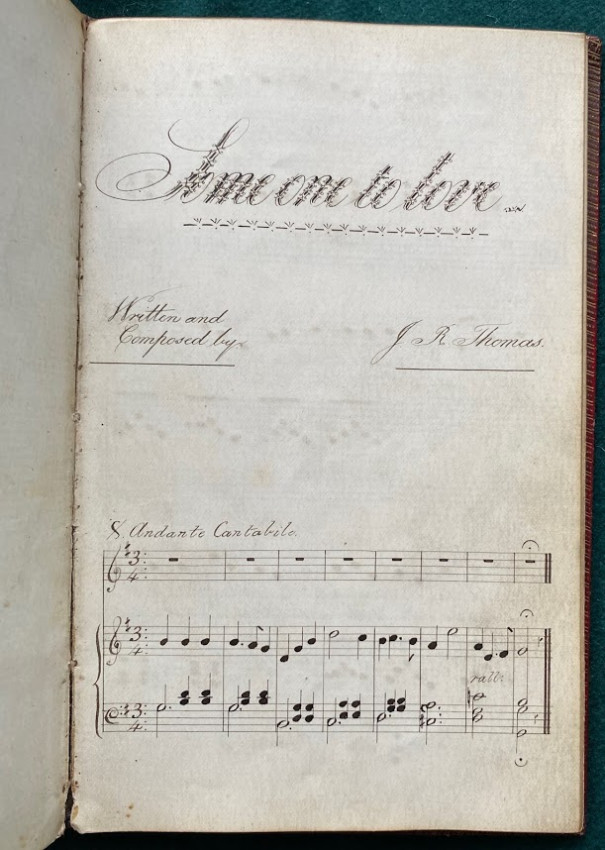 Some one to love
Written and
Composed by
J. R. Thomas.
Andante Cantabile.
3
4
3
4
rall:
3
4